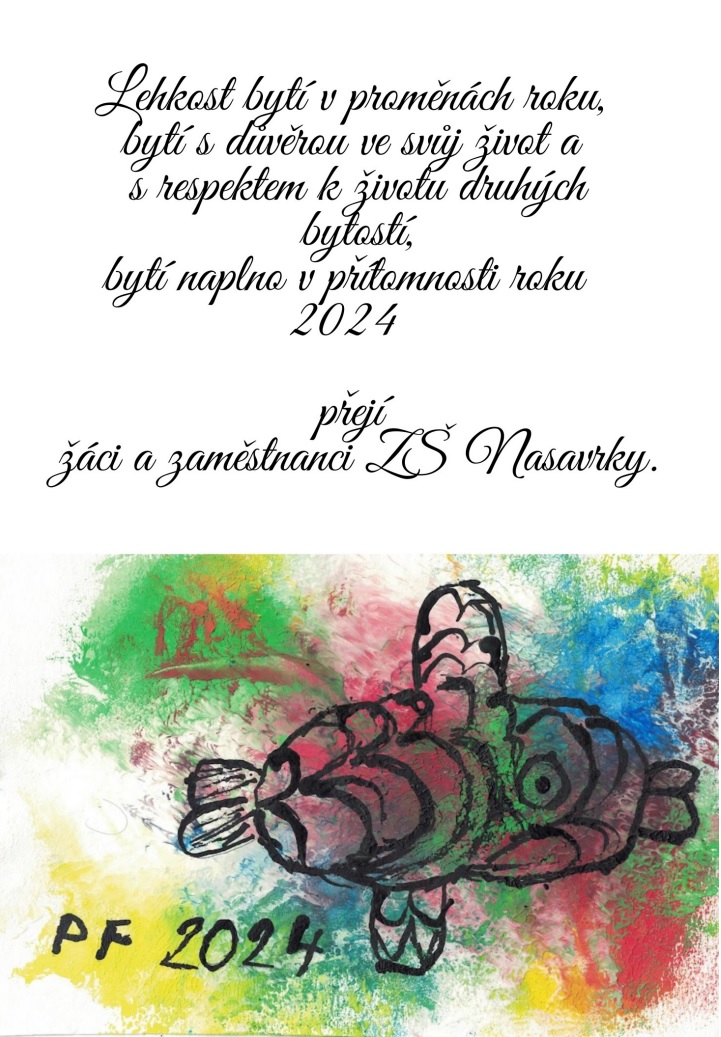 Lehkost bytí v proměnách roku,
bytí s důvěrou ve svůj život a
s respektem k životu druhých
bytostí,
bytí naplno v přítomnosti roku
2024
přejí
žáci a zaměstnanci ZŠ Nasavrky.
PF 2024